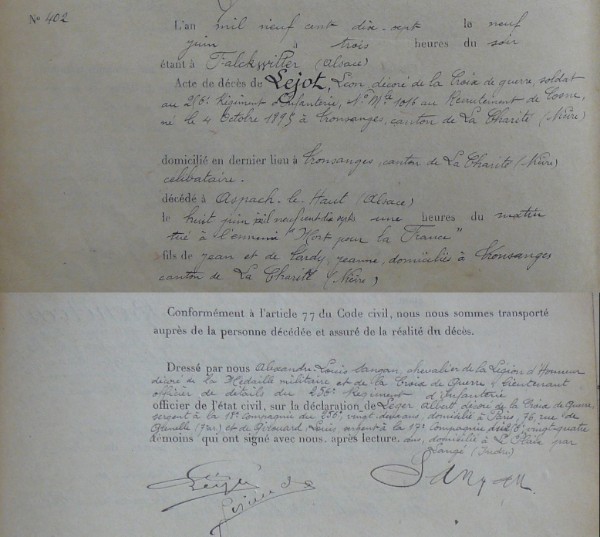 No 402
L'an mil neuf cent dix-sept le neuf
juin à trois heures du soir
étant à Falckwiller (Alsace)
Acte de décès de Lejot, Léon, décoré de la Croix de guerre, soldat
au 256e Régiment d'Infanterie, No Mle 1016 au Recrutement de Cosne,
né le 4 Octobre 1895 à Tronsanges, canton de La Charité (Nièvre)
domicilié en dernier lieu à Tronsanges, canton de La Charité (Nièvre)
célibataire.
décédé à Aspach-le-Haut (Alsace)
le huit juin mil neuf cent dix sept une heures du matin
tué à l'ennemi "Mort pour la France"
fils de Jean et de Lardy, Jeanne, domiciliés à Tronsanges
canton de La Charité (Nièvre)
Conformément à l'article 77 du Code civil, nous nous sommes transporté
auprès de la personne décédée et assuré de la réalité du décès.
Dressé par nous Alexandre Louis Sangan, chevalier de la Légion d'Honneur
décoré de la Médaille militaire et de la Croix de Guerre, Lieutenant
officier de détails du 256e Régiment d'Infanterie
officier de l'état civil, sur la déclaration de Léger Albert décoré de la Croix de Guerre,
sergent à la 17e compagnie du 256e, vingt deux ans, domicilié à Paris, 76, rue de
Grenelle (7e) et de Louis, sergent à la 17e Compagnie du 256e, vingt quatre
témoins qui ont signé avec nous, après lecture. ans, domicilié à par
Langé (Indre)
Léger
Sangan